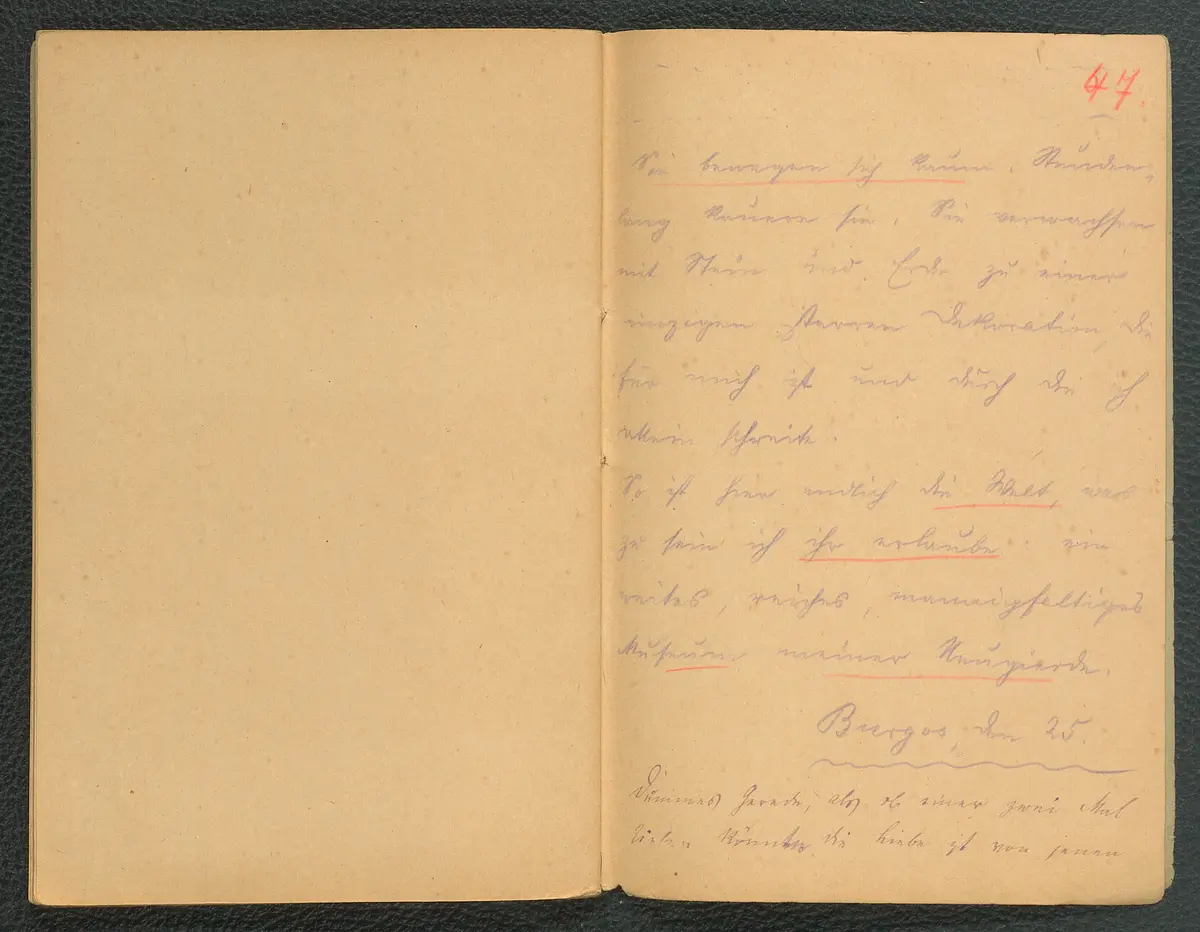 47.
Sie bewegen sich kaum. Stunden-
lang kauern sie. Sie verwachsen
mit Stein und Erde zu einer
einzigen starren Dekoration, die
für mich ist und durch die ich
allein schreite.
So ist hier endlich die Welt, was
zu sein ich ihr erlaube: ein
weites, reiches, mannigfaltiges
Museum meiner Neugierde.
Burgos, den 25.
Dummes Gerede, als ob einer zwei Mal
lieben könnte die Liebe ist von jenen